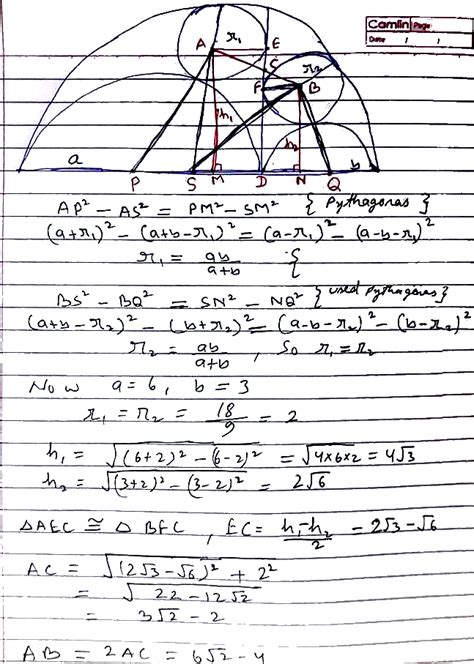 Camlin Page
Date / /
A r₁ E
C r₂
F B
h₁ h₂
a P S M D N Q b
AP² - AS² = PM² - SM² { Pythagoras }
(a+r₁)² - (a+b-r₁)² = (a-r₁)² - (a-b-r₁)²
r₁ = ab/(a+b)
BS² - BQ² = SN² - NQ² { used pythagoras }
(a+b-r₂)² - (b+r₂)² = (a-b-r₂)² - (b-r₂)²
r₂ = ab/(a+b) , So r₁ = r₂
Now a = 6, b = 3
r₁ = r₂ = 18/9 = 2
h₁ = √((6+2)² - (6-2)²) = √(4×6×2) = 4√3
h₂ = √((3+2)² - (3-2)²) = 2√6
△AEC ≅ △BFC , EC = (h₁-h₂)/2 = 2√3 - √6
AC = √((2√3-√6)² + 2²)
= √(22 - 12√2)
= 3√2 - 2
AB = 2AC = 6√2 - 4